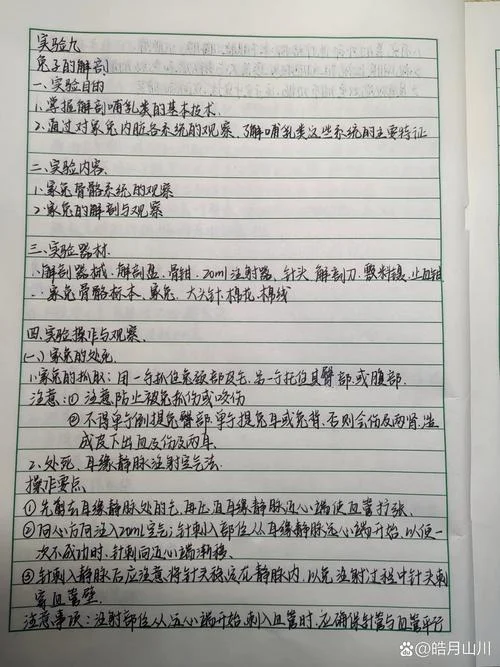 实验九
兔子的解剖
一、实验目的
1.掌握解剖哺乳类的基本技术.
2.通过对家兔内脏各系统的观察,了解哺乳类这些系统的主要特征
二、实验内容.
1.家兔骨骼系统的观察
2.家兔的解剖与观察
三、实验器材.
1.解剖器械、解剖盘、骨钳、20ml注射器、针头、解剖刀、止血钳
2.家兔骨骼标本、家兔、大头针、棉花、棉线
四、实验操作与观察.
(一)家兔的处死.
1.家兔的抓取:用一手抓住兔颈部皮毛,另一手托住其臀部或腹部.
注意:①注意防止被兔抓伤或咬伤
②不得单手倒提兔臀部,单手提兔耳或兔背,否则会伤及两肾,造
成皮下出血及伤及两耳.
2.处死,耳缘静脉注射空气法.
操作要点
①先剪去耳缘静脉处的毛,再压耳缘静脉近心端使血管扩张.
②向心方向注入20ml空气;针刺入部位从耳缘静脉远心端开始,以便一
次不成功时,针刺向近心端渐移.
③针刺入静脉后应注意将针头稳定在静脉内,以免注射过程中针头刺
穿血管壁.
注意事项:注射部位从远心端开始.刺入血管时,应确保针管与血管平行
@皓月山川